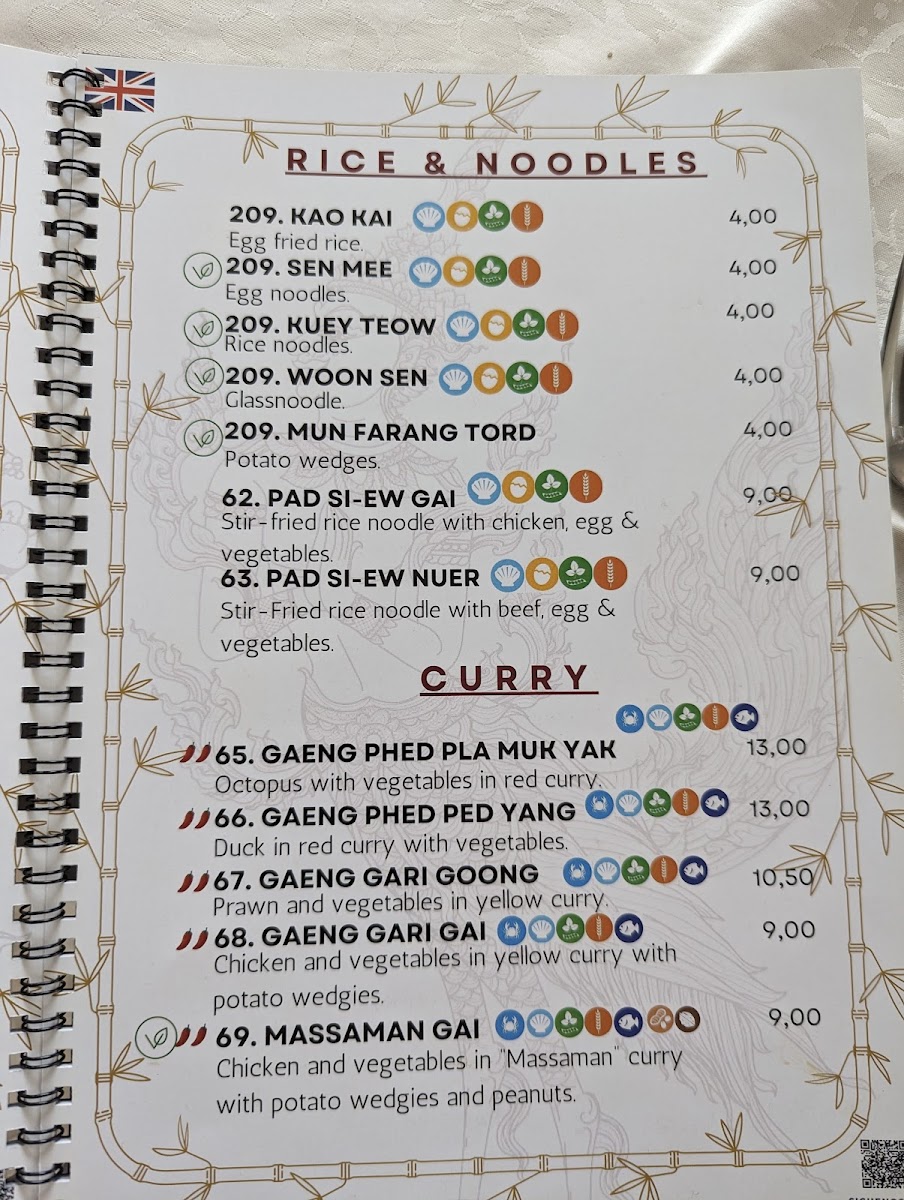 RICE & NOODLES
209. KAO KAI 4,00
Egg fried rice.
209. SEN MEE 4,00
Egg noodles.
209. KUEY TEOW 4,00
Rice noodles.
209. WOON SEN 4,00
Glassnoodle.
209. MUN FARANG TORD 4,00
Potato wedges.
62. PAD SI-EW GAI 9,00
Stir-fried rice noodle with chicken, egg &
vegetables.
63. PAD SI-EW NUER 9,00
Stir-Fried rice noodle with beef, egg &
vegetables.
CURRY
65. GAENG PHED PLA MUK YAK 13,00
Octopus with vegetables in red curry.
66. GAENG PHED PED YANG 13,00
Duck in red curry with vegetables.
67. GAENG GARI GOONG 10,50
Prawn and vegetables in yellow curry.
68. GAENG GARI GAI 9,00
Chicken and vegetables in yellow curry with
potato wedgies.
69. MASSAMAN GAI 9,00
Chicken and vegetables in "Massaman" curry
with potato wedgies and peanuts.